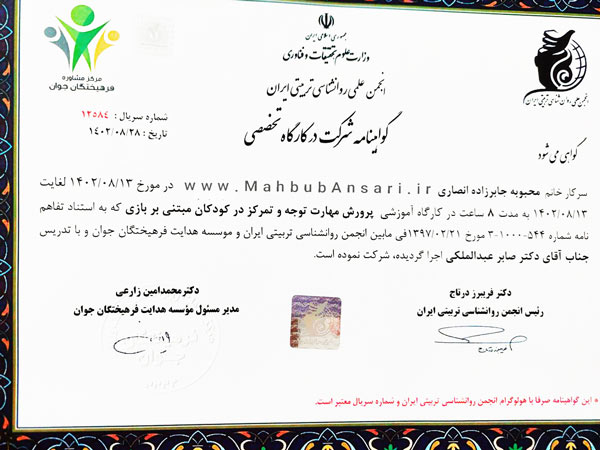 جمهوری اسلامی ایران
وزارت علوم، تحقیقات و فناوری
انجمن علمی روانشناسی تربیتی ایران
گواهینامه شرکت در کارگاه تخصصی
مرکز مشاوره
فرهیختگان جوان
شماره سریال: ۱۲۵۸۴
تاریخ: ۱۴۰۲/۰۸/۲۸
انجمن علمی روان شناسی تربیتی ایران
گواهی می شود
سرکار خانم محبوبه جابرزاده انصاری www.MahbubAnsari.ir در مورخ ۱۴۰۲/۰۸/۱۳ لغایت
۱۴۰۲/۰۸/۱۳ به مدت ۸ ساعت در کارگاه آموزشی پرورش مهارت توجه و تمرکز در کودکان مبتنی بر بازی که به استناد تفاهم
نامه شماره ۵۴۴-۱۰۰۰۰-۳ مورخ ۱۳۹۷/۰۲/۲۱فی مابین انجمن روانشناسی تربیتی ایران و موسسه هدایت فرهیختگان جوان و با تدریس
جناب آقای دکتر صابر عبدالملکی اجرا گردیده، شرکت نموده است.
دکتر فریبرز درتاج
رئیس انجمن روانشناسی تربیتی ایران
دکترمحمدامین زارعی
مدیر مسئول مؤسسه هدایت فرهیختگان جوان
* این گواهینامه صرفا با هولوگرام انجمن روانشناسی تربیتی ایران و شماره سریال معتبر است.